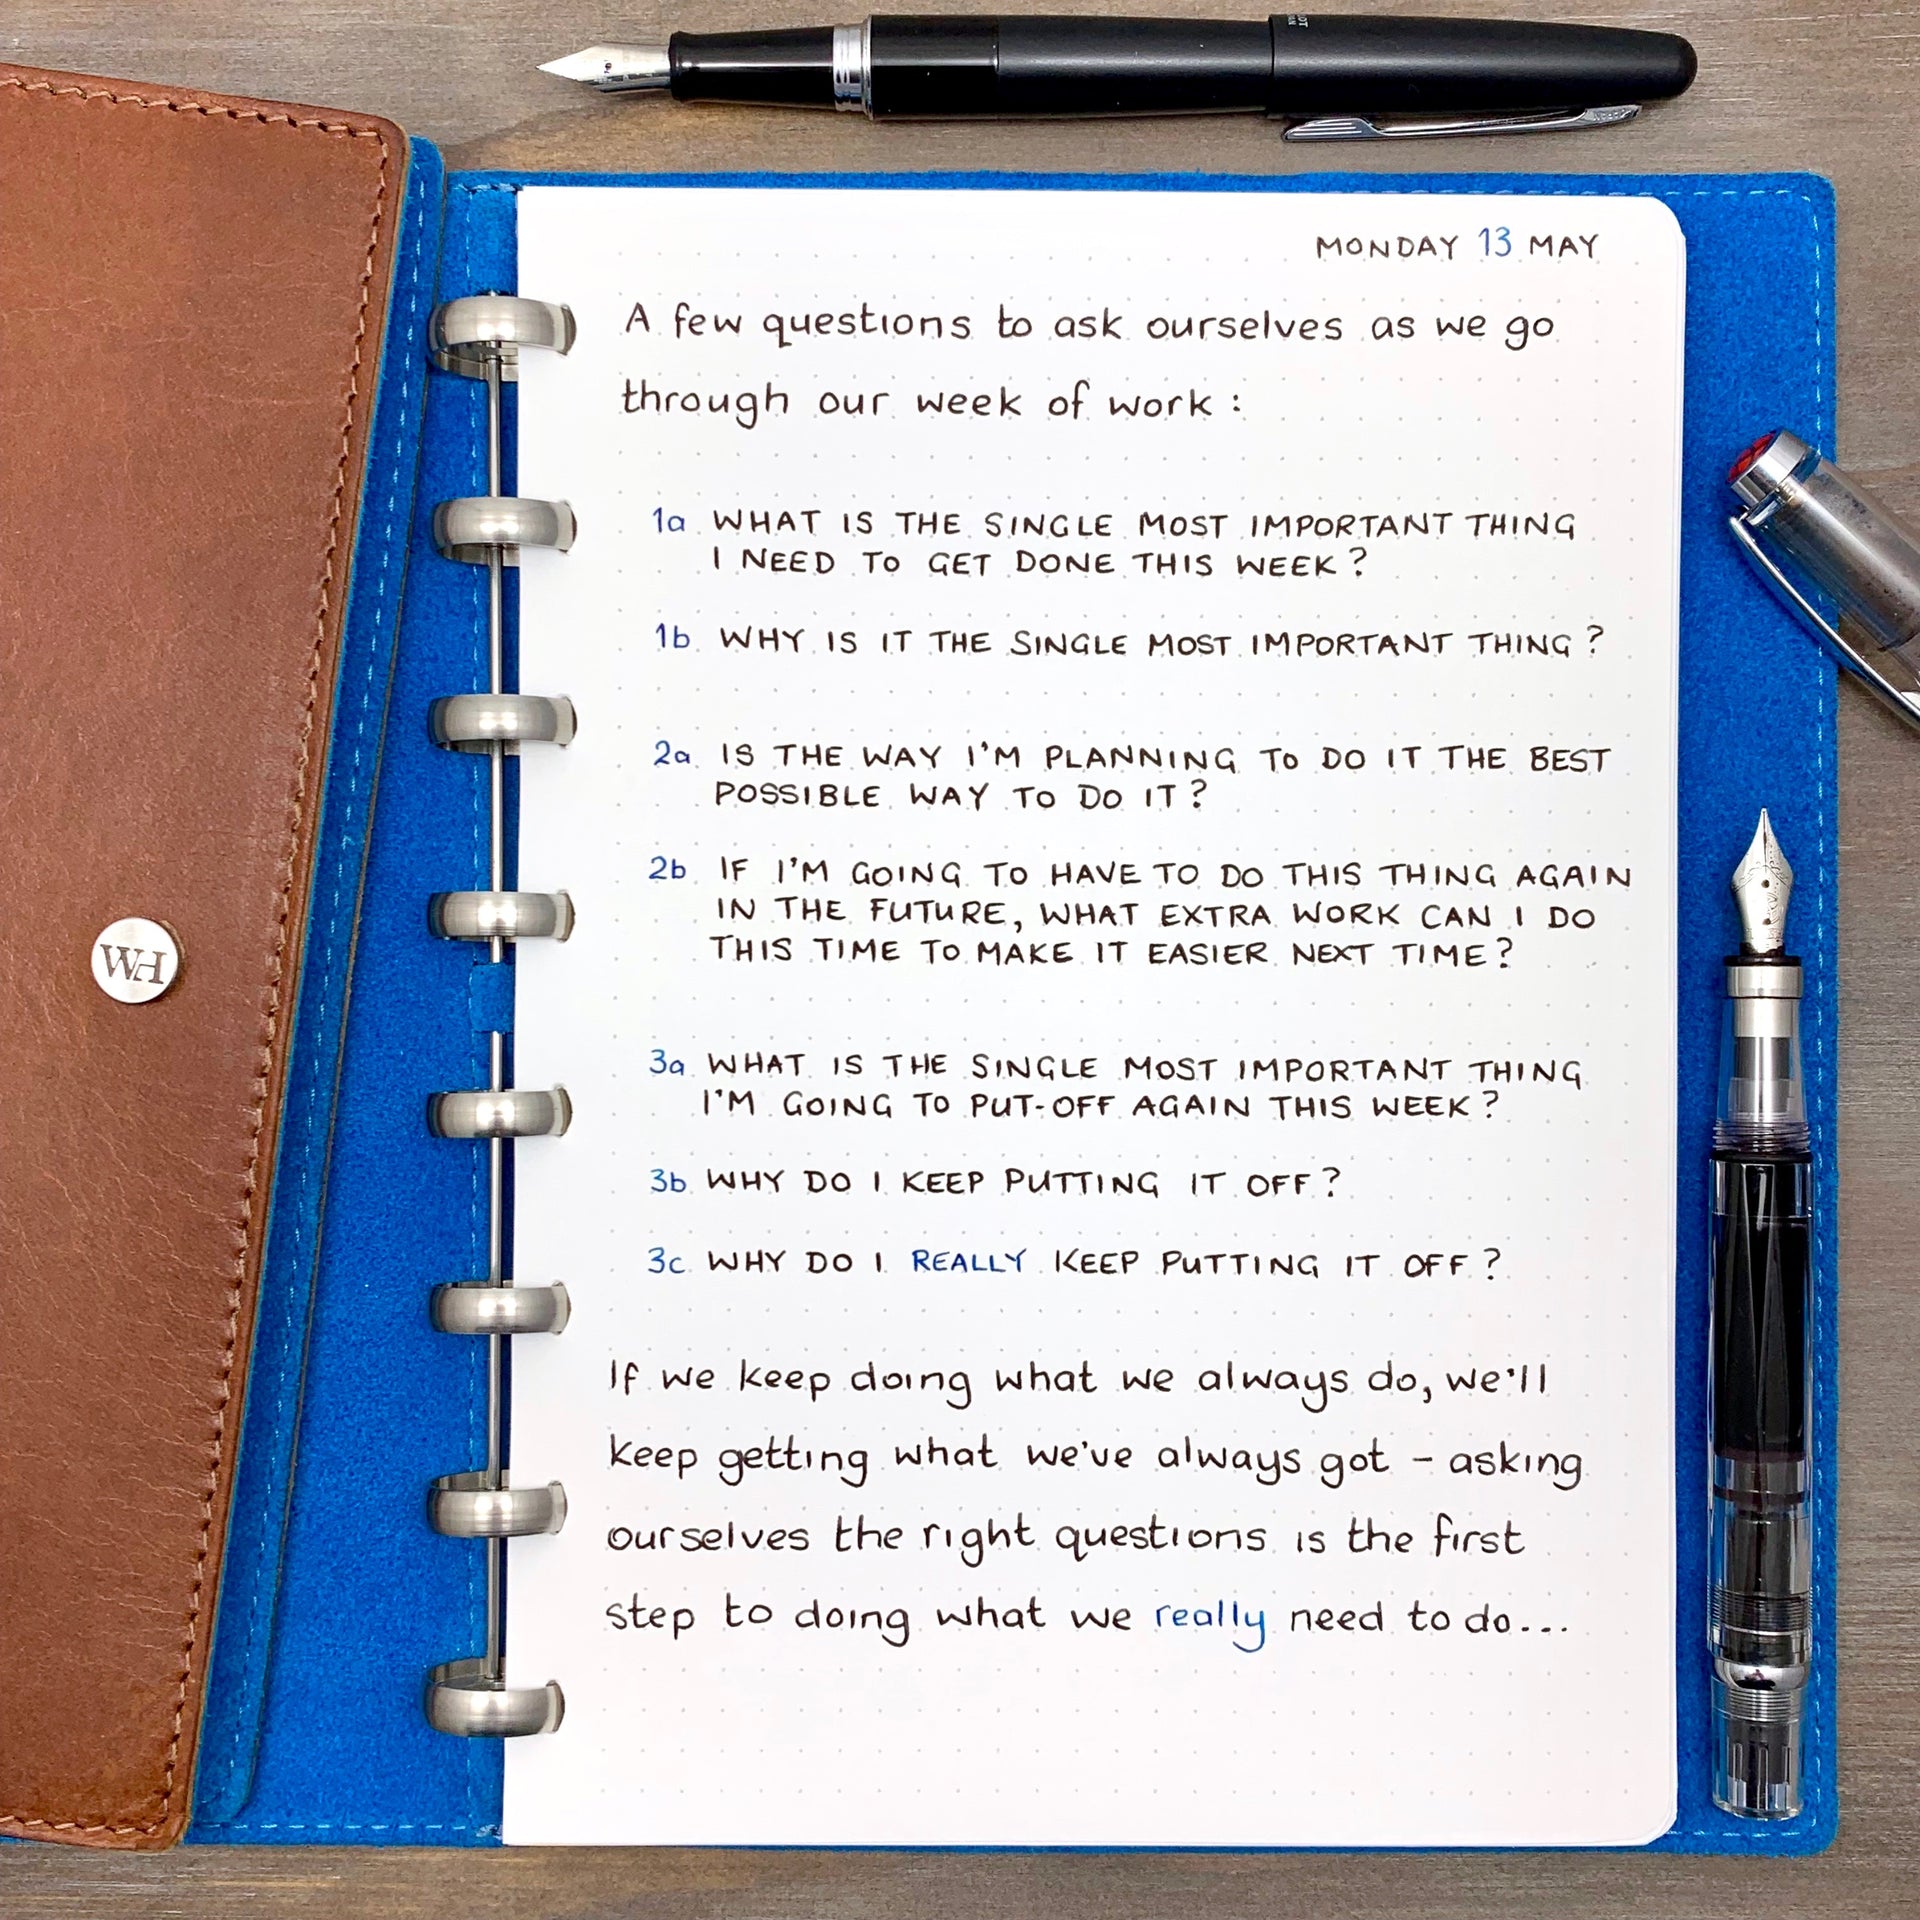 MONDAY 13 MAY
A few questions to ask ourselves as we go
through our week of work :
1a WHAT IS THE SINGLE MOST IMPORTANT THING
I NEED TO GET DONE THIS WEEK ?
1b WHY IS IT THE SINGLE MOST IMPORTANT THING ?
2a IS THE WAY I'M PLANNING TO DO IT THE BEST
POSSIBLE WAY TO DO IT ?
2b IF I'M GOING TO HAVE TO DO THIS THING AGAIN
IN THE FUTURE, WHAT EXTRA WORK CAN I DO
THIS TIME TO MAKE IT EASIER NEXT TIME ?
3a WHAT IS THE SINGLE MOST IMPORTANT THING
I'M GOING TO PUT-OFF AGAIN THIS WEEK ?
3b WHY DO I KEEP PUTTING IT OFF ?
3c WHY DO I REALLY KEEP PUTTING IT OFF ?
If we keep doing what we always do, we'll
keep getting what we've always got - asking
ourselves the right questions is the first
step to doing what we really need to do...
WH